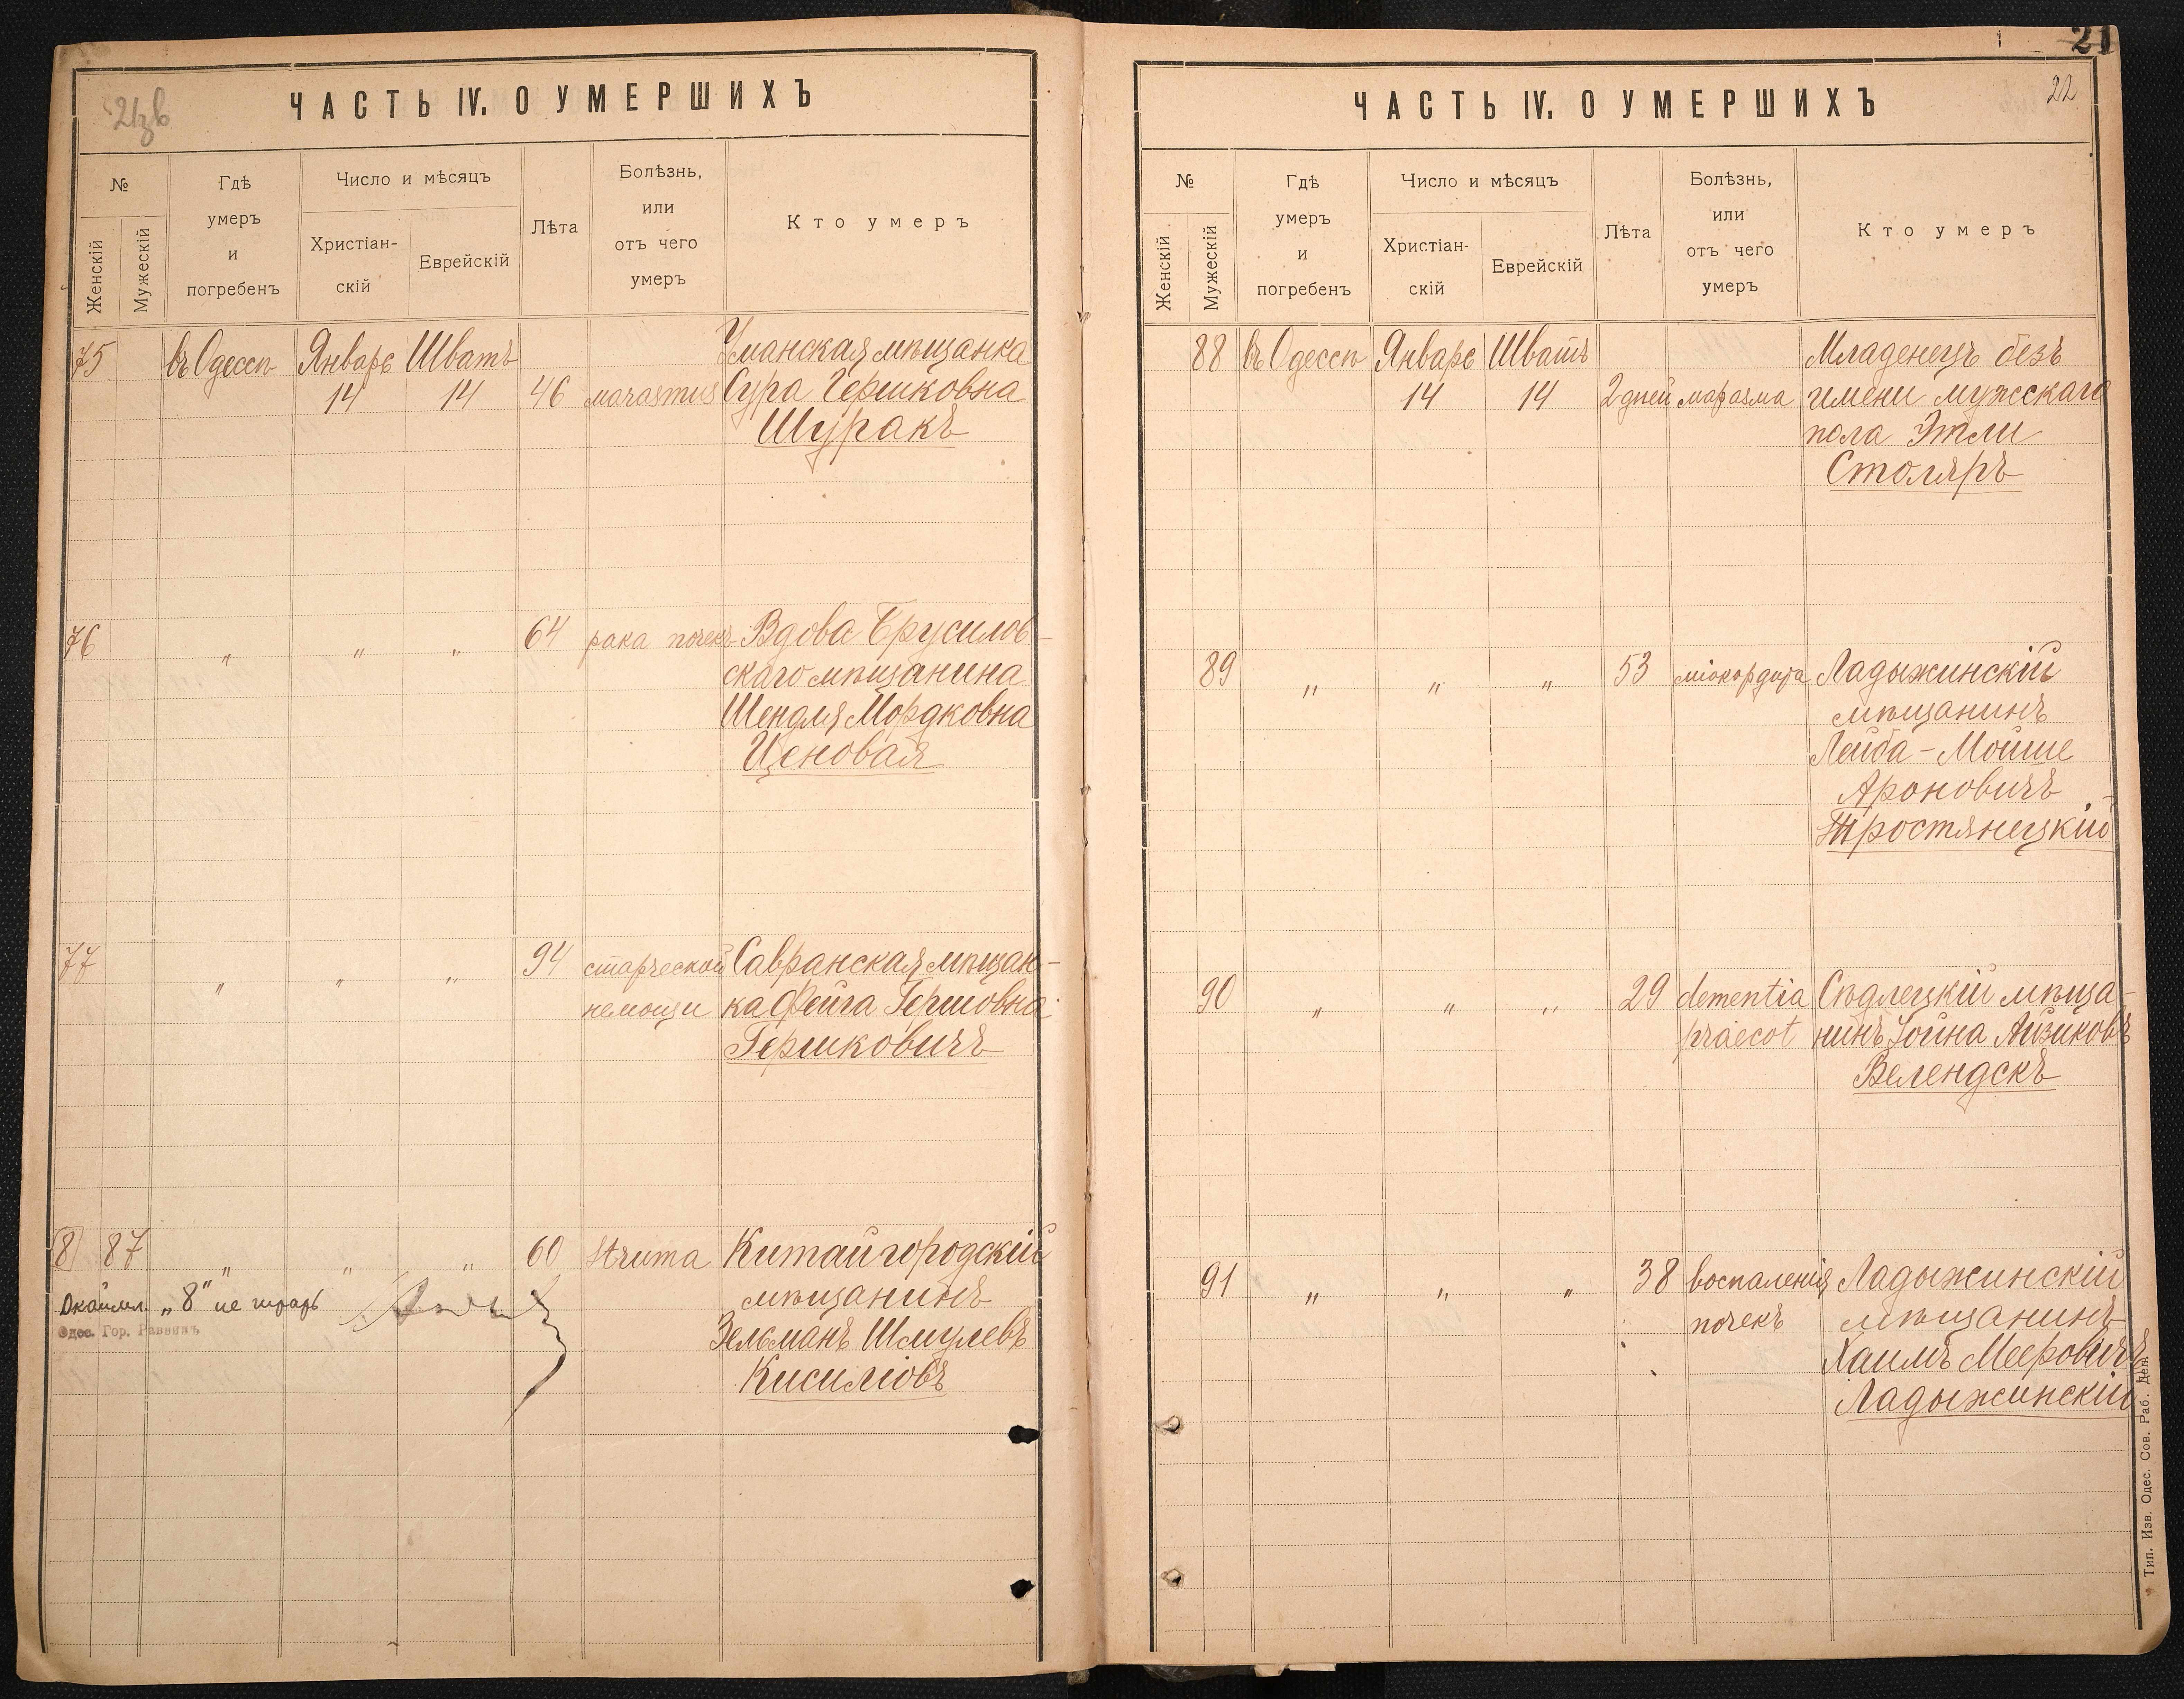 21зв
ЧАСТЬ IV. О УМЕРШИХЪ
№
Женскій
Мужескій
Гдѣ умеръ и погребенъ
Число и мѣсяцъ
Христіан-скій
Еврейскій
Лѣта
Болѣзнь, или отъ чего умеръ
Кто умеръ
75 въ Одессѣ Январь Шватъ Уманская мѣщанка
14 14 46 marasmus Сура Гершковна
Шуракъ
76 „ „ „ 64 рака почекъ Вдова Брусилов-
скаго мѣщанина
Шендля Мордковна
Ценовая
77 „ „ „ 94 старческой Савранская мѣщан-
немощи ка Фейга Гершовна
Гершковичъ
8 87 „ „ „ 60 struma Китайгородскій
мѣщанинъ
Окаймл. „8" не читать
Одес. Гор. Раввинъ
Зельманъ Шмулевъ
Кисиліовъ
21
22
ЧАСТЬ IV. О УМЕРШИХЪ
№
Женскій
Мужескій
Гдѣ умеръ и погребенъ
Число и мѣсяцъ
Христіан-скій
Еврейскій
Лѣта
Болѣзнь, или отъ чего умеръ
Кто умеръ
88 въ Одессѣ Январь Шватъ Младенецъ безъ
14 14 2 дней маразма имени мужскаго
пола Этли
Столяръ
89 „ „ „ 53 міокардита Ладыжинскій
мѣщанинъ
Лейба-Мойше
Ароновичъ
Тростянецкій
90 „ „ „ 29 dementia Сѣдлецкій мѣща-
praecot нинъ Іойна Айзиковъ
Велендскъ
91 „ „ „ 38 воспаленія Ладыжинскій
почекъ мѣщанинъ
Хаимъ Мееровичъ
Ладыжинскій
Тип. Изв. Одес. Сов. Раб. Деп.